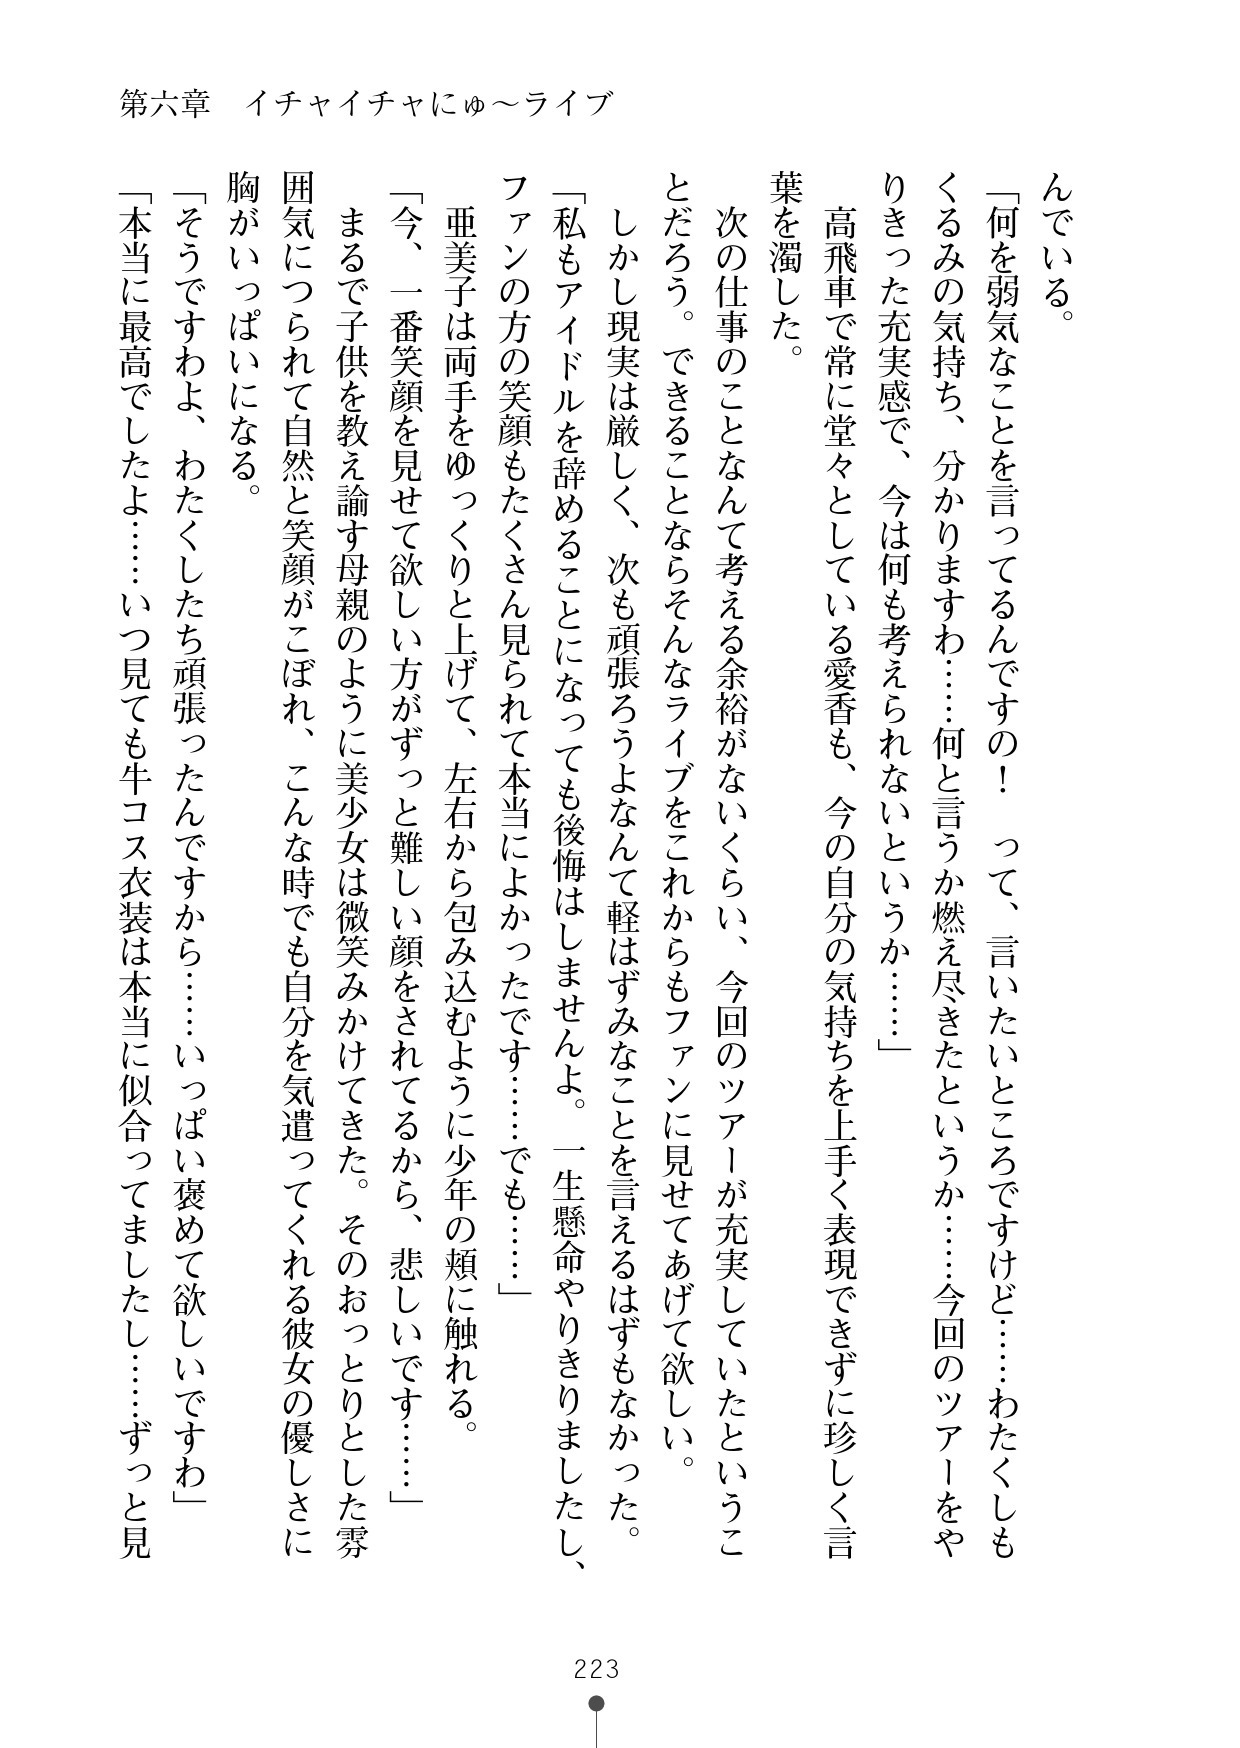 第六章　イチャイチャにゅ～ライブ
んでいる。
「何を弱気なことを言ってるんですの！　って、言いたいところですけど……わたくしも
くるみの気持ち、分かりますわ……何と言うか燃え尽きたというか……今回のツアーをや
りきった充実感で、今は何も考えられないというか……」
　高飛車で常に堂々としている愛香も、今の自分の気持ちを上手く表現できずに珍しく言
葉を濁した。
　次の仕事のことなんて考える余裕がないくらい、今回のツアーが充実していたというこ
とだろう。できることならそんなライブをこれからもファンに見せてあげて欲しい。
　しかし現実は厳しく、次も頑張ろうよなんて軽はずみなことを言えるはずもなかった。
「私もアイドルを辞めることになっても後悔はしませんよ。一生懸命やりきりましたし、
ファンの方の笑顔もたくさん見られて本当によかったです……でも……」
　亜美子は両手をゆっくりと上げて、左右から包み込むように少年の頬に触れる。
「今、一番笑顔を見せて欲しい方がずっと難しい顔をされてるから、悲しいです……」
　まるで子供を教え諭す母親のように美少女は微笑みかけてきた。そのおっとりとした雰
囲気につられて自然と笑顔がこぼれ、こんな時でも自分を気遣ってくれる彼女の優しさに
胸がいっぱいになる。
「そうですわよ、わたくしたち頑張ったんですから……いっぱい褒めて欲しいですわ」
「本当に最高でしたよ……いつ見ても牛コス衣装は本当に似合ってましたし……ずっと見
223